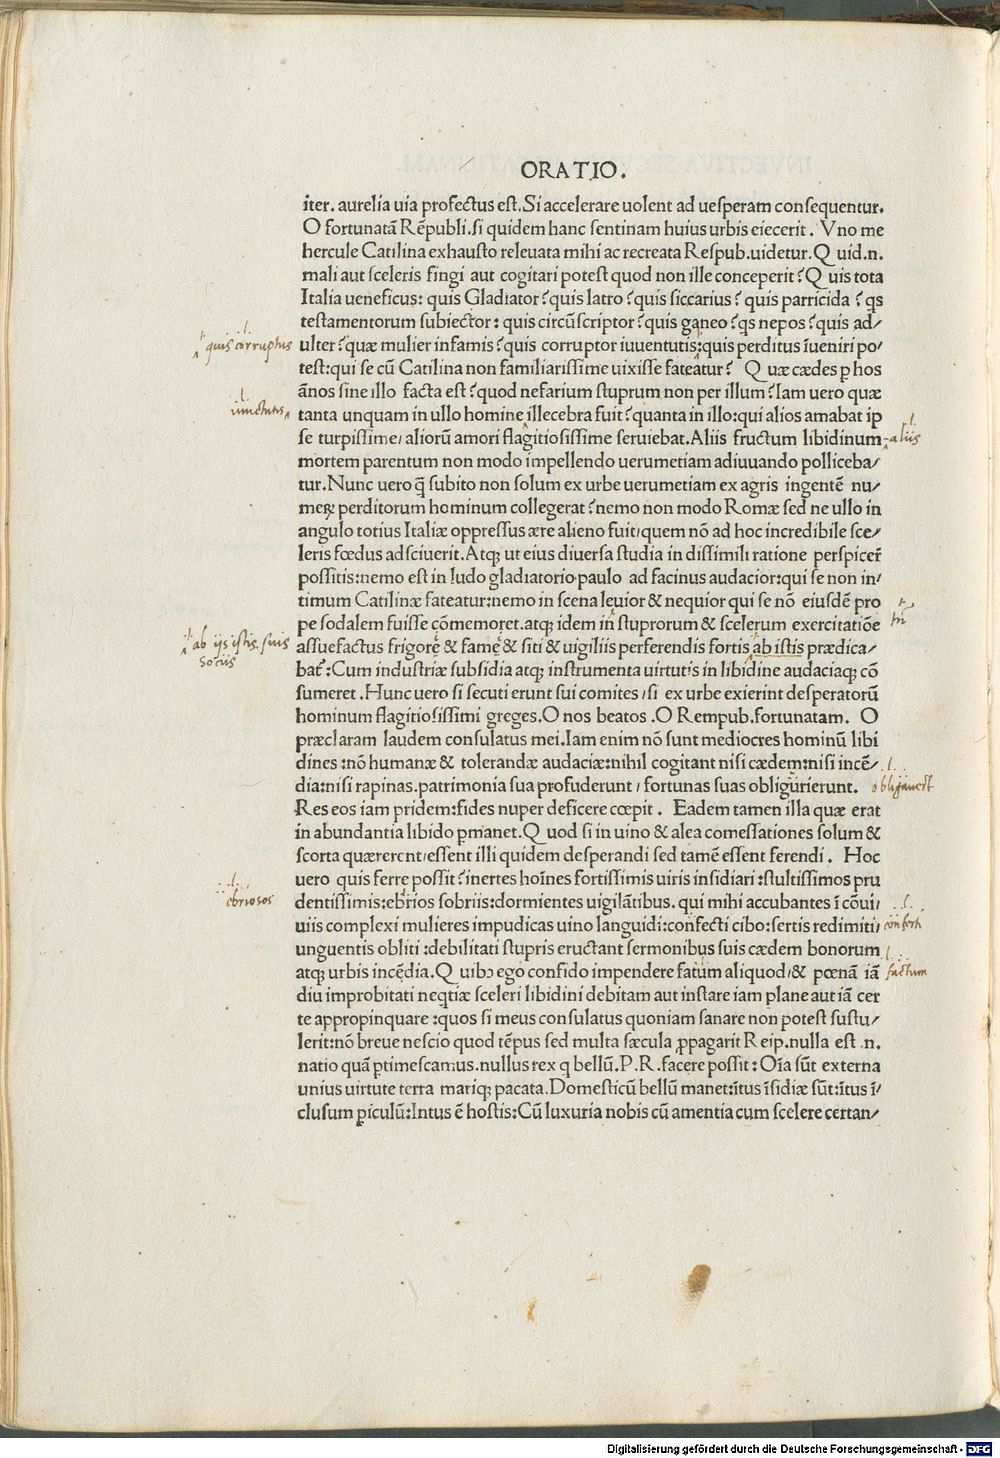 ORATIO.
iter. aurelia uia profectus est. Si accelerare uolent ad uesperam consequentur.
O fortunatā Rēpubli. si quidem hanc sentinam huius urbis eiecerit. Vno me
hercule Catilina exhausto releuata mihi ac recreata Respub. uidetur. Quid .n.
mali aut sceleris fingi aut cogitari potest quod non ille conceperit? Quis tota
Italia ueneficus: quis Gladiator? quis latro? quis siccarius? quis parricida? qs
testamentorum subiector: quis circūscriptor? quis ganeo? qs nepos? quis ad/
ulter? quæ mulier infamis? quis corruptor iuuentutis: quis perditus īueniri po/
test: qui se cū Catilina non familiarissime uixisse fateatur? Quæ cædes p hos
ānos sine illo facta est? quod nefarium stuprum non per illum? Iam uero quæ
tanta unquam in ullo homine illecebra fuit? quanta in illo: qui alios amabat ip
se turpissime/ aliorū amori flagitiosissime seruiebat. Aliis fructum libidinum
mortem parentum non modo impellendo uerumetiam adiuuando polliceba/
tur. Nunc uero q̄ subito non solum ex urbe uerumetiam ex agris ingentē nu/
meꝝ perditorum hominum collegerat? nemo non modo Romæ sed ne ullo in
angulo totius Italiæ oppressus ære alieno fuit/ quem nō ad hoc incredibile sce/
leris fœdus adsciuerit. Atqꝫ ut eius diuersa studia in dissimili ratione perspicer̄
possitis: nemo est in ludo gladiatorio paulo ad facinus audacior: qui se non in/
timum Catilinæ fateatur: nemo in scena leuior & nequior qui se nō eiusdē pro
pe sodalem fuisse cōmemoret. atqꝫ idem in stuprorum & scelerum exercitatiōe
assuefactus frigore & fame & siti & uigiliis perferendis fortis ab istis prædica/
bat̄: Cum industriæ subsidia atqꝫ instrumenta uirtutis in libidine audaciaqꝫ cō
sumeret. Hunc uero si secuti erunt sui comites/ si ex urbe exierint desperatorū
hominum flagitiosissimi greges. O nos beatos. O Rempub. fortunatam. O
præclaram laudem consulatus mei. Iam enim nō sunt mediocres hominū libi
dines: nō humanæ & tolerandæ audaciæ: nihil cogitant nisi cædem: nisi incē/
dia: nisi rapinas. patrimonia sua profuderunt/ fortunas suas obligurierunt.
Res eos iam pridem: fides nuper deficere cœpit. Eadem tamen illa quæ erat
in abundantia libido pmanet. Quod si in uino & alea comessationes solum &
scorta quærerent/ essent illi quidem desperandi sed tamē essent ferendi. Hoc
uero quis ferre possit? inertes hoīnes fortissimis uiris insidiari: stultissimos pru
dentissimis: ebrios sobriis: dormientes uigilātibus. qui mihi accubantes ī cōui/
uiis complexi mulieres impudicas uino languidi: confecti cibo: sertis redimiti/
unguentis obliti: debilitati stupris eructant sermonibus suis cædem bonorum
atqꝫ urbis incēdia. Quibꝰ ego confido impendere fatum aliquod/ & pœnā iā
diu improbitati neqtiæ sceleri libidini debitam aut instare iam plane aut iā cer
te appropinquare: quos si meus consulatus quoniam sanare non potest sustu/
lerit: nō breue nescio quod tēpus sed multa sæcula ꝓpagarit Reip. nulla est .n.
natio quā ptimescamus. nullus rex q bellū. P. R. facere possit: Oīa sūt externa
unius uirtute terra mariqꝫ pacata. Domesticū bellū manet: ītus īsidiæ sūt: ītus ī/
clusum piculū: Intus ē hostis: Cū luxuria nobis cū amentia cum scelere certan/
quis corruptus
iunctutis
aliis
ab iis istis suis
sociis
ebriosos
conferti
factum
Digitalisierung gefördert durch die Deutsche Forschungsgemeinschaft - DFG